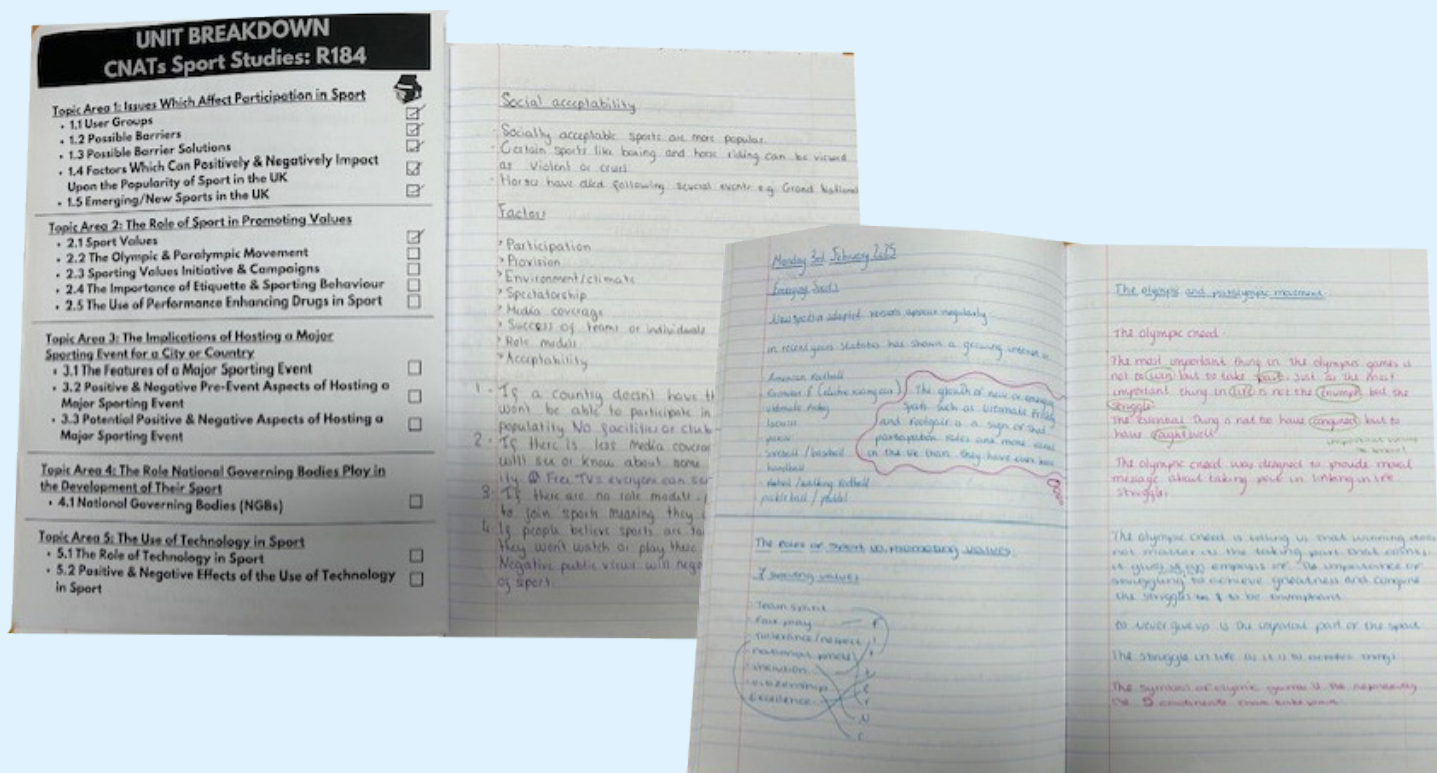 UNIT BREAKDOWN
CNATs Sport Studies: R184
Topic Area 1: Issues Which Affect Participation in Sport
• 1.1 User Groups
• 1.2 Possible Barriers
• 1.3 Possible Barrier Solutions
• 1.4 Factors Which Can Positively & Negatively Impact
Upon the Popularity of Sport in the UK
• 1.5 Emerging/New Sports in the UK
Topic Area 2: The Role of Sport in Promoting Values
• 2.1 Sport Values
• 2.2 The Olympic & Paralympic Movement
• 2.3 Sporting Values Initiative & Campaigns
• 2.4 The Importance of Etiquette & Sporting Behaviour
• 2.5 The Use of Performance Enhancing Drugs in Sport
Topic Area 3: The Implications of Hosting a Major
Sporting Event for a City or Country
• 3.1 The Features of a Major Sporting Event
• 3.2 Positive & Negative Pre-Event Aspects of Hosting a
Major Sporting Event
• 3.3 Potential Positive & Negative Aspects of Hosting a
Major Sporting Event
Topic Area 4: The Role National Governing Bodies Play in
the Development of Their Sport
• 4.1 National Governing Bodies (NGBs)
Topic Area 5: The Use of Technology in Sport
• 5.1 The Role of Technology in Sport
• 5.2 Positive & Negative Effects of the Use of Technology
in Sport
Social acceptability
- Socially acceptable sports are more popular.
- Certain sports like boxing and horse riding can be viewed
as violent or cruel
- Horses have died following several events e.g. Grand National
Factors
> Participation
> Provision
> Environment/climate
> Spectatorship
> Media coverage
> Success of teams or individuals
> Role models
> Acceptability
1. If a country doesnt have th
wont be able to participate in
popularity. No facilities or club
2. If there is less media covera
will see or know about some
Free TVs everyone can se
3. If there are no role models
to join sports meaning they
4. If people believe sports are
they won't watch or play
Negative public views will nega
of sport.
Monday 3rd February 2025
Emerging Sports
New sports adapted versions appear regularly
in recent years statistics has shown a growing interest in
American football
Formula E (electric racing cars)
ultimate frisbee
lacrosse
softball / baseball
handball
walking football
pickleball / padel
The growth of new or emerging
sports such as ultimate frisbee
and footgolf is a sign that
participation rates are more varied
in the UK than they have ever been
The roles of sport in promoting values
7 sporting values
Team spirit
Fair play
tolerance/respect
national pride
inclusion
citizenship
Excellence
The olympic and paralympic movement
The olympic creed
The most important thing in the olympics games is
not to win but to take part just as the most
important thing in life is not the triumph but the
struggle
The essential thing is not to have conquered but to
have fought well
The olympic creed was designed to provide moral
message about taking part in linking in life
struggle.
The olympic creed is telling us that winning does
not matter its the taking part that counts.
it gives emphasis on the importance of
struggling to achieve greatness and conquer
the struggles to be triumphant
to never give up is the important part of the sport
The struggle in life as it is to achieve things
The symbol of olympic games is the representing
the 5 continents